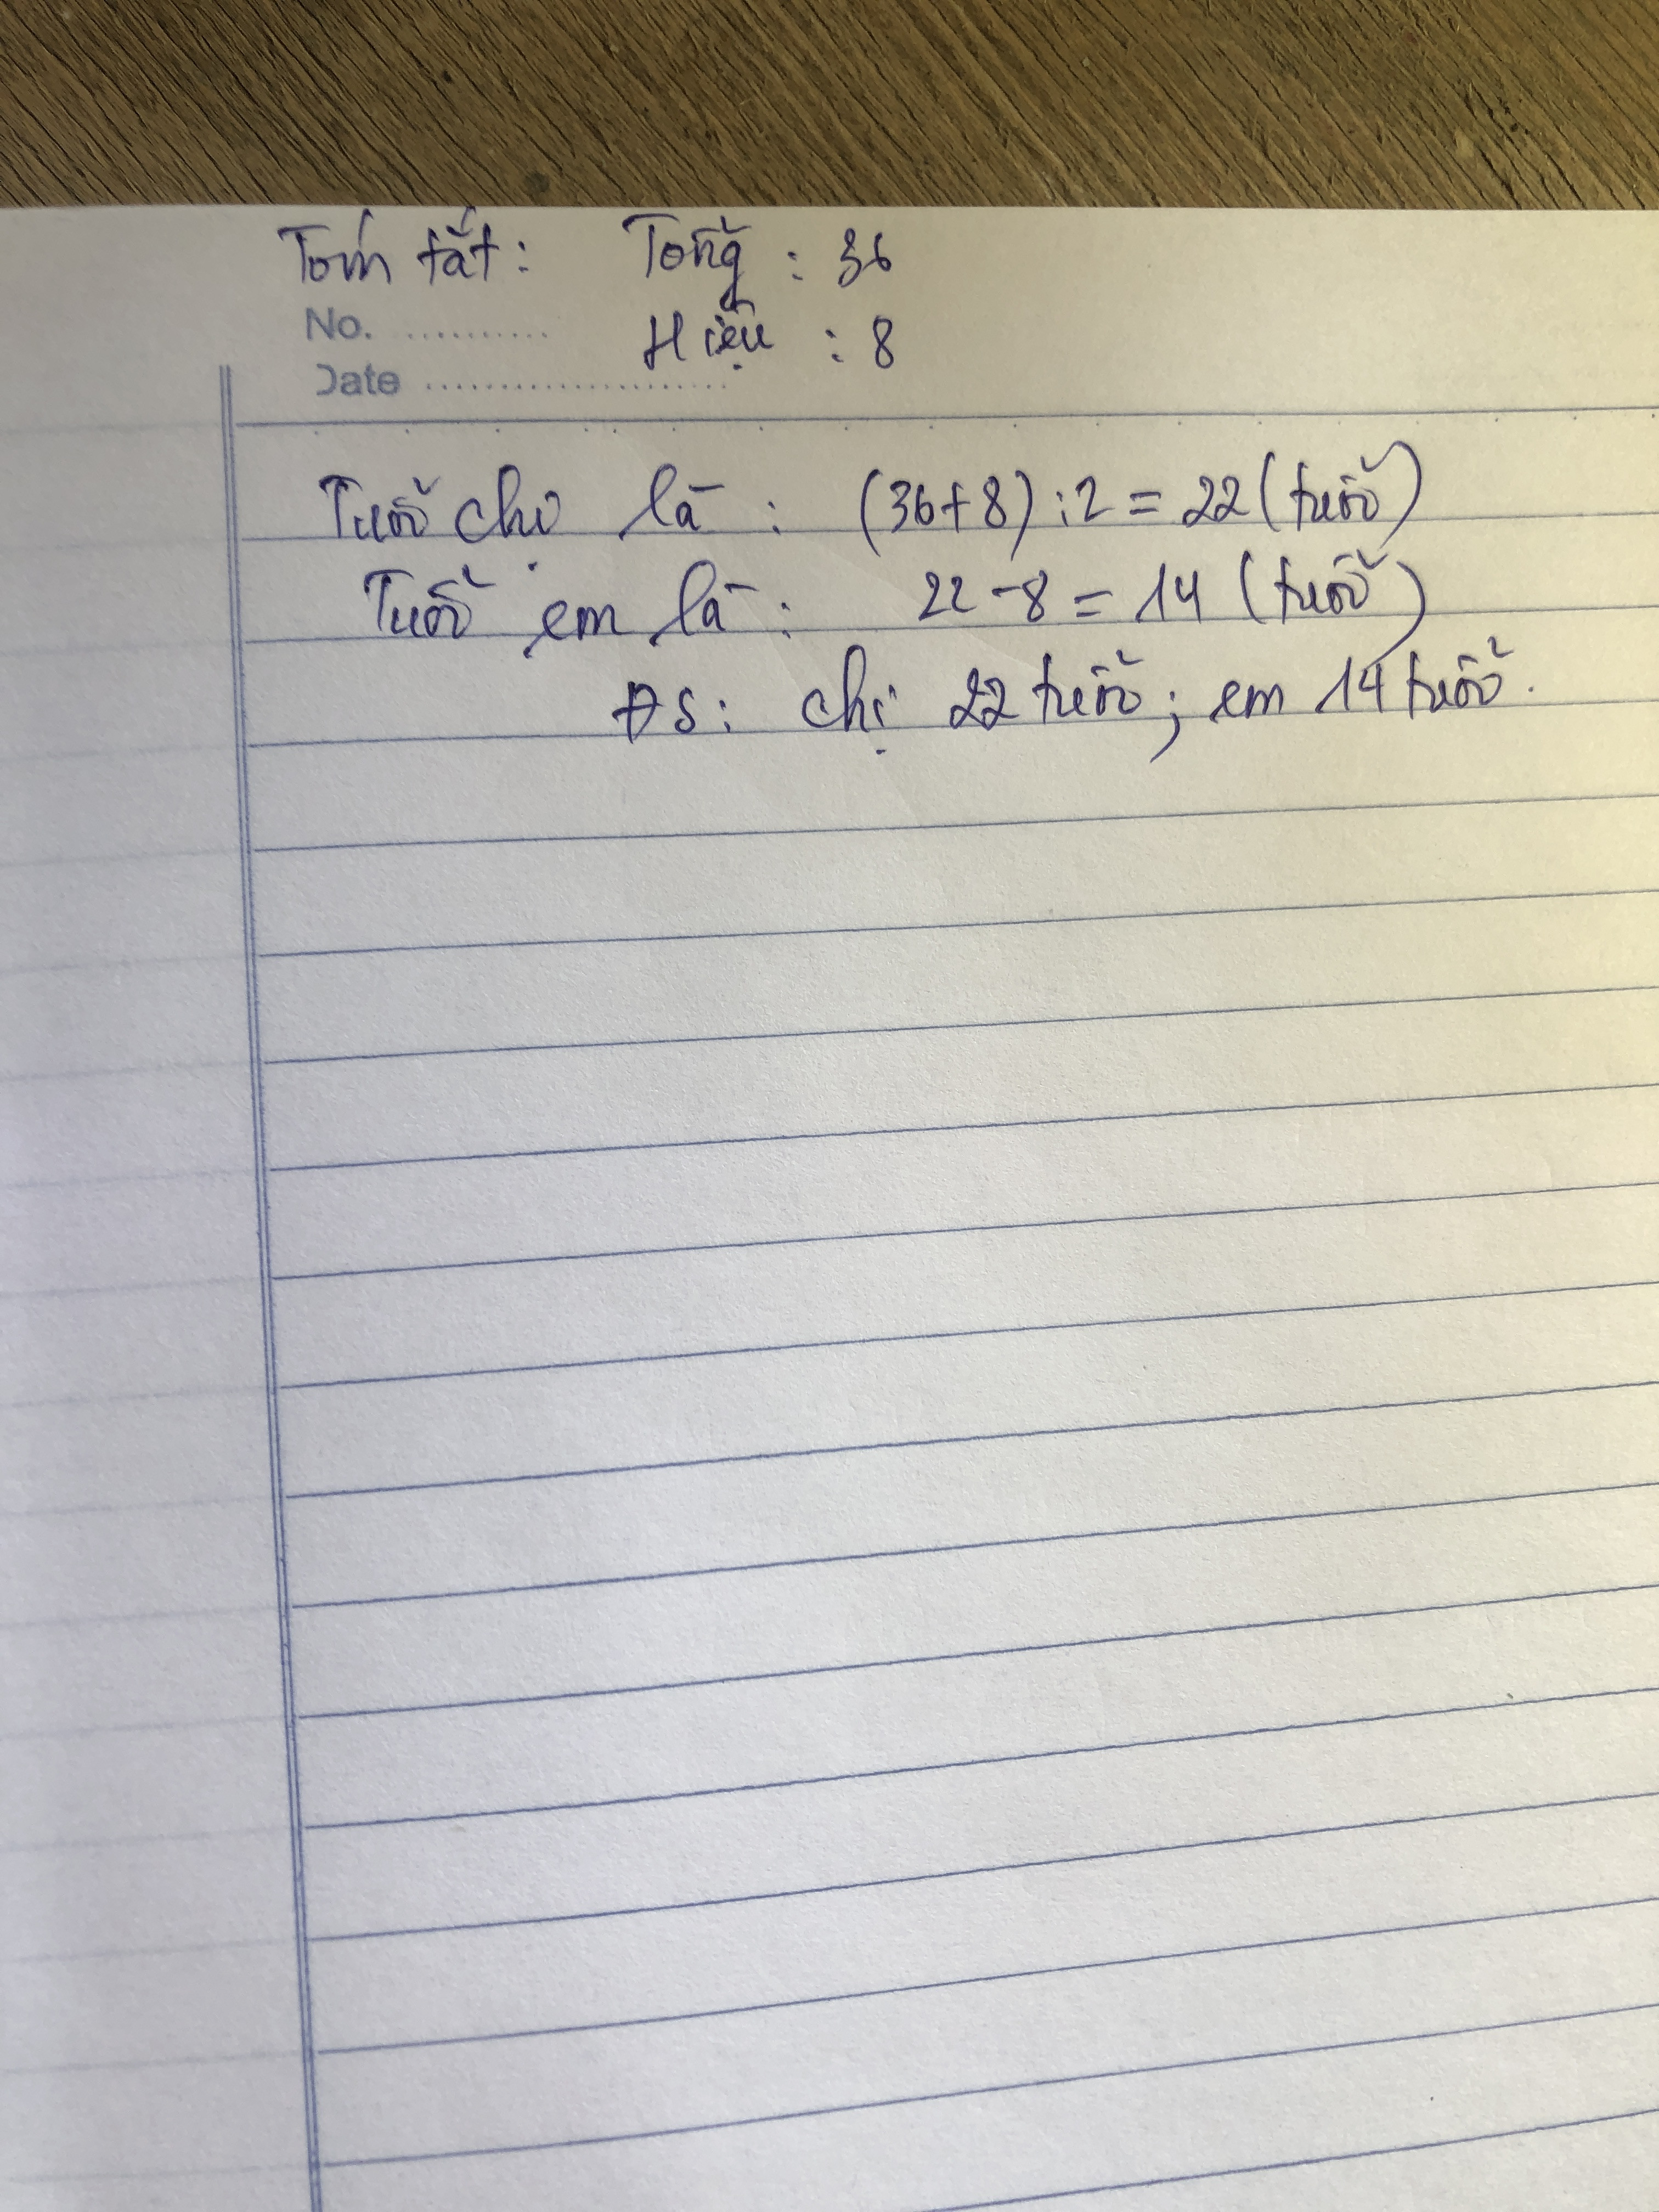 Tóm tắt: Tổng : 36
No. ........... Hiệu : 8
Date .......................
Tuổi chị là : (36+8) : 2 = 22 (tuổi)
Tuổi em là : 22 - 8 = 14 (tuổi)
ĐS : chị 22 tuổi ; em 14 tuổi.